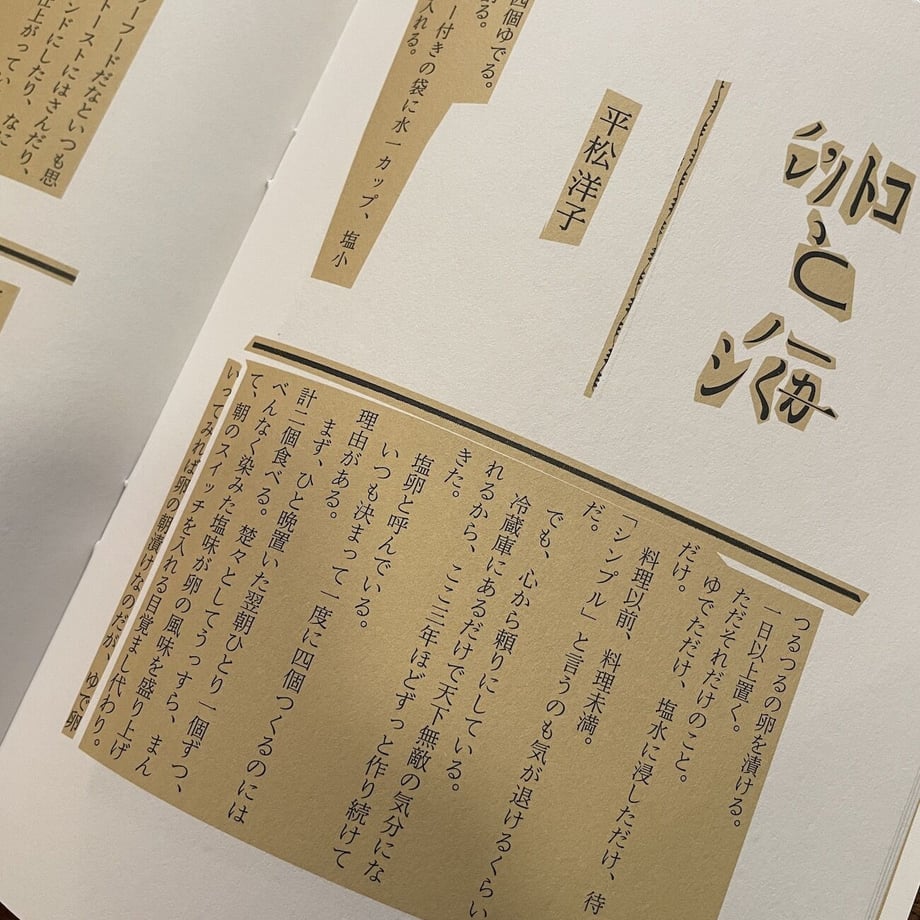 平松洋子
四個ゆでる。
る。
ー付きの袋に水一カップ、塩小
入れる。
つるつるの卵を漬ける。
一日以上置く。
ただそれだけのこと。
ゆでただけ、塩水に浸しただけ、待
だけ。
料理以前、料理未満。
「シンプル」と言うのも気が退けるくらい
だ。
でも、心から頼りにしている。
冷蔵庫にあるだけで天下無敵の気分にな
れるから、ここ三年ほどずっと作り続けて
きた。
塩卵と呼んでいる。
いつも決まって一度に四個つくるのには
理由がある。
まず、ひと晩置いた翌朝ひとり一個ずつ、
計二個食べる。楚々としてうっすら、まん
べんなく染みた塩味が卵の風味を盛り上げ
て、朝のスイッチを入れる目覚まし代わり。
いってみれば卵の朝漬けなのだが、ゆで卵
ーフードだなといつも思
トーストにはさんだり、
ンドにしたり、なに
仕上がってい